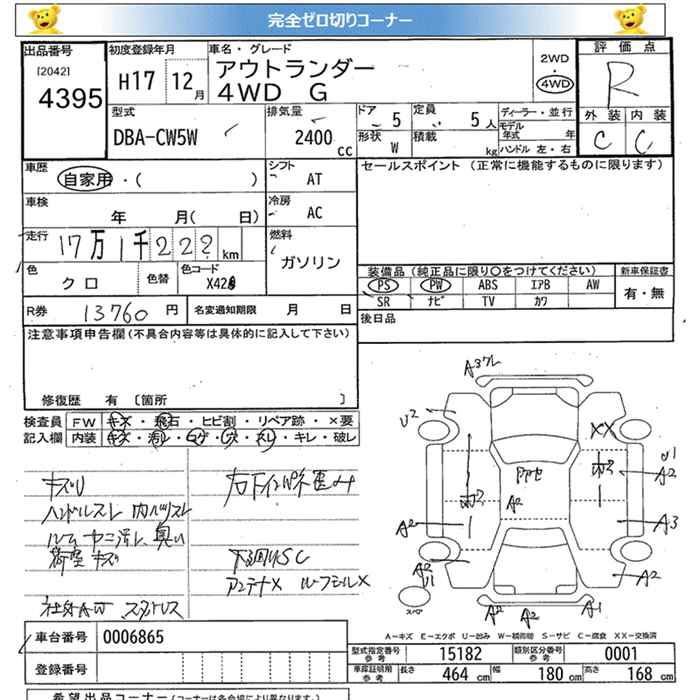 完全ゼロ切りコーナー
出品番号
[2042]
4395
初度登録年月
H17 12月
車名・グレード
アウトランダー
4WD G
2WD
・
4WD
評価点
R
外装 内装
C C
型式
DBA-CW5W
排気量
2400
CC
ドア 5
定員 5人
形状 W
積載 kg
ディーラー・並行
モデル年式 年
ハンドル 左・右
車歴
自家用・( )
シフト
AT
セールスポイント (正常に機能するものに限ります)
車検
年 月( 日)
冷房
AC
走行
17万1千222km
燃料
ガソリン
色
クロ
色替
色コード
X42
装備品 (純正品に限り○をつけてください)
PS PW ABS エアB AW
SR ナビ TV カワ
新車保証書
有・無
R券 13760 円
名変通知期限 月 日
後日品
注意事項申告欄(不具合内容等は具体的に記入して下さい)
修復歴 有 [箇所 ]
検査員
記入欄
FW キズ・飛石・ヒビ割・リペア跡・×要
内装 キズ・汚レ・コゲ・穴・スレ・キレ・破レ
キズU
ハンドルスレ
ルーム ヤニ汚レ、臭い
荷室 キズ
社外AW スタッドレス
下廻りSC
アンテナX
A3
U2
XX
U1
A2
A2
A2
A3
A2
U1
A2
A2
A2
A1
スペア
A-キズ E-エクボ U-凹み W-補修跡 S-サビ C-腐食 XX-交換済
車台番号
0006865
登録番号
型式指定番号
参考
15182
類別区分番号
参考
0001
車庫証明用
参考
長さ 464 cm
幅 180 cm
高さ 168 cm
希望出品コーナー